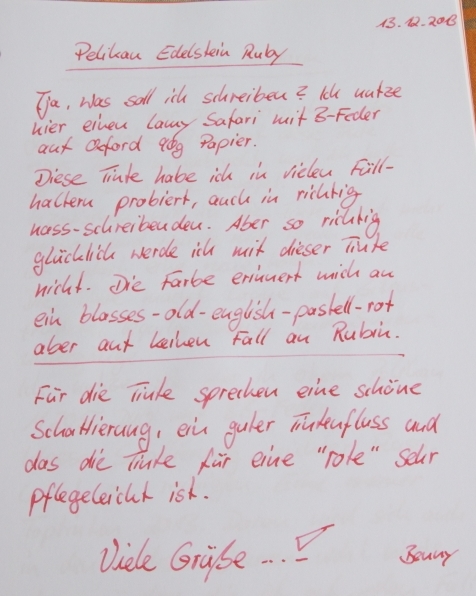 13.12.2013
Pelikan Edelstein Ruby
Tja, was soll ich schreiben? Ich nutze
hier einen Lamy Safari mit B-Feder
auf Oxford 90g Papier.
Diese Tinte habe ich in vielen Füll-
haltern probiert, auch in richtig
nass-schreibenden. Aber so richtig
glücklich werde ich mit dieser Tinte
nicht. Die Farbe erinnert mich an
ein blasses-old-english-pastell-rot
aber auf keinen Fall an Rubin.
Für die Tinte sprechen eine schöne
Schattierung, ein guter Tintenfluss und
das die Tinte für eine "rote" sehr
pflegeleicht ist.
Viele Grüße ...!
Benny